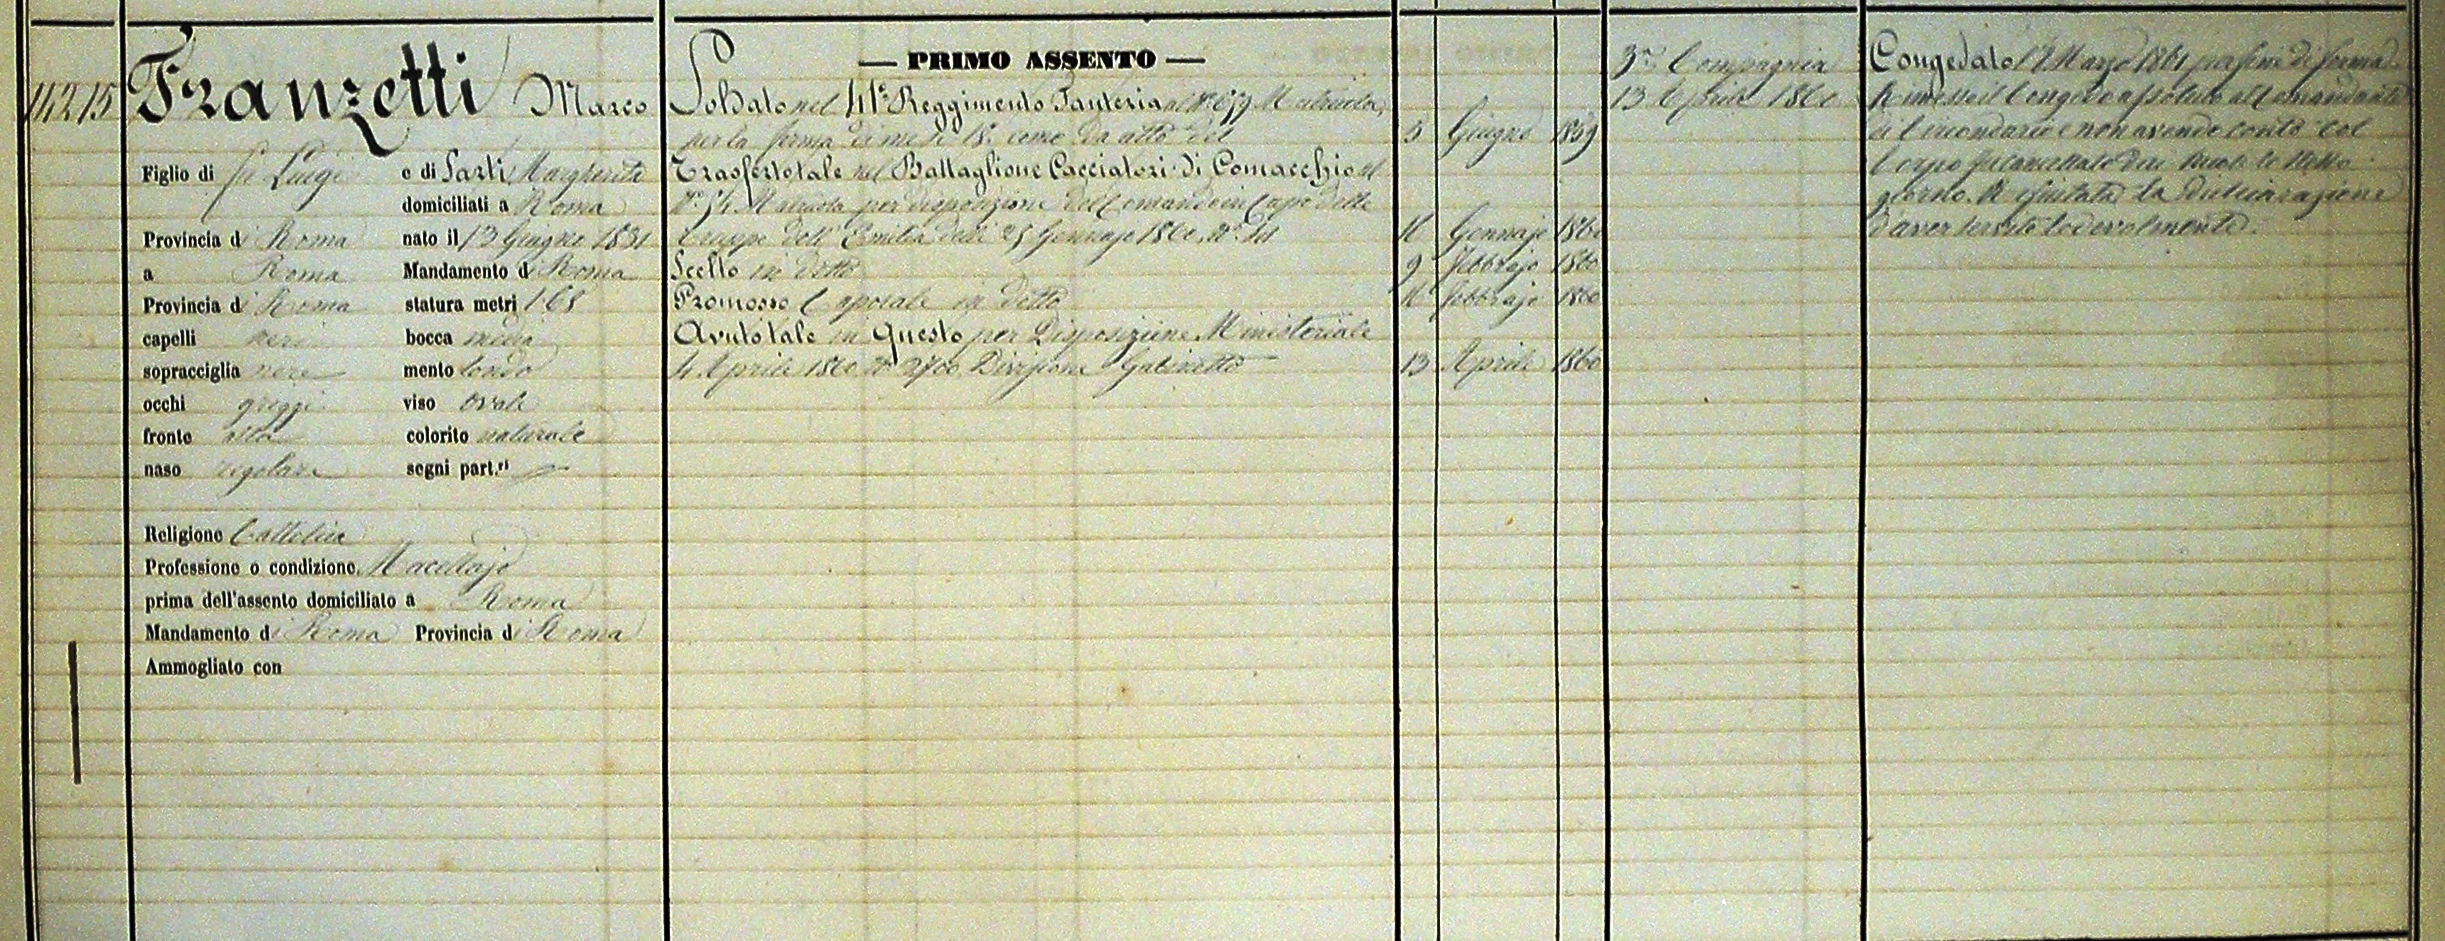 14215
Franzetti Marco
Figlio di fu Luigi e di Sarti Margherita
domiciliati a Roma
Provincia di Roma nato il 13 Giugno 1831
a Roma Mandamento di Roma
Provincia di Roma statura metri 1.68
capelli neri bocca media
sopracciglia nere mento tondo
occhi griggi viso ovale
fronte alta colorito naturale
naso regolare segni part.ri
Religione Cattolica
Professione o condizione Macellajo
prima dell'assento domiciliato a Roma
Mandamento di Roma Provincia di Roma
Ammogliato con
— PRIMO ASSENTO —
Soldato nel 41º Reggimento Fanteria al Nº 679 Matricola,
per la ferma di mesi 18. come da atto del 5 Giugno 1859
Trasferto tale nel Battaglione Cacciatori di Comacchio al
Nº 54 Matricola per disposizione del Comando in Capo delle
truppe dell'Emilia delli 25 Gennajo 1860 Nº 16 Gennajo 1860
Scelto in detto 9 Febbrajo 1860
Promosso Caporale in detto 16 Febbrajo 1860
Avuto tale in Questo per Disposizione Ministeriale
4 Aprile 1860 Nº 2700 Divisione Gabinetto 13 Aprile 1860
3ª Compagnia
13 Aprile 1860
Congedato Marzo 1861 per fine di ferma.
Rimesso il Congedo assoluto al Comandante
il Circondario e non avendo conto col
Corpo fu cancellato dai Ruoli lo stesso
giorno. Rifiutata la dichiarazione
d'aver servito lodevolmente.